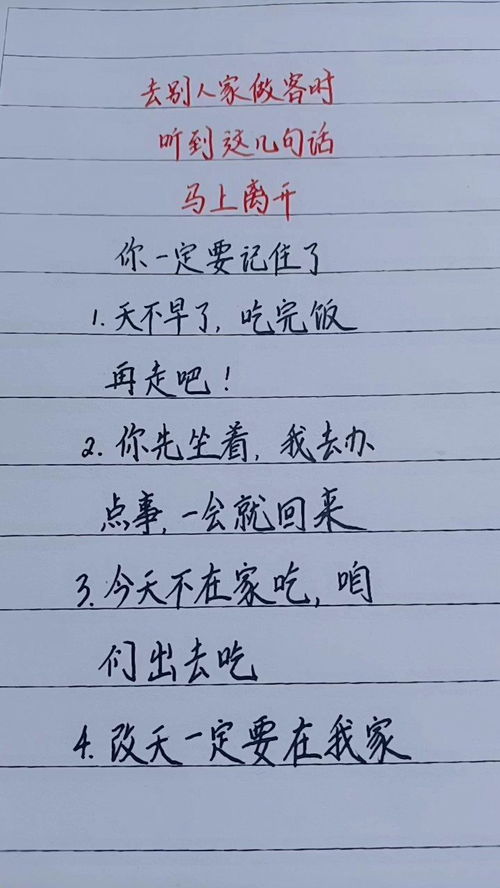 去别人家做客时
听到这几句话
马上离开
你一定要记住了
1.天不早了,吃完饭
再走吧!
2.你先坐着,我去办
点事,一会就回来
3.今天不在家吃,咱
们出去吃
4.改天一定要在我家